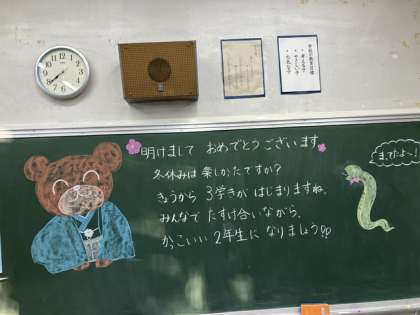 明けまして おめでとうございます
冬休みは 楽しかったですか?
きょうから 3学きが はじまりますね。
みんなで たすけ合いながら、
かっこいい 2年生に なりましょう
まってたよ〜!